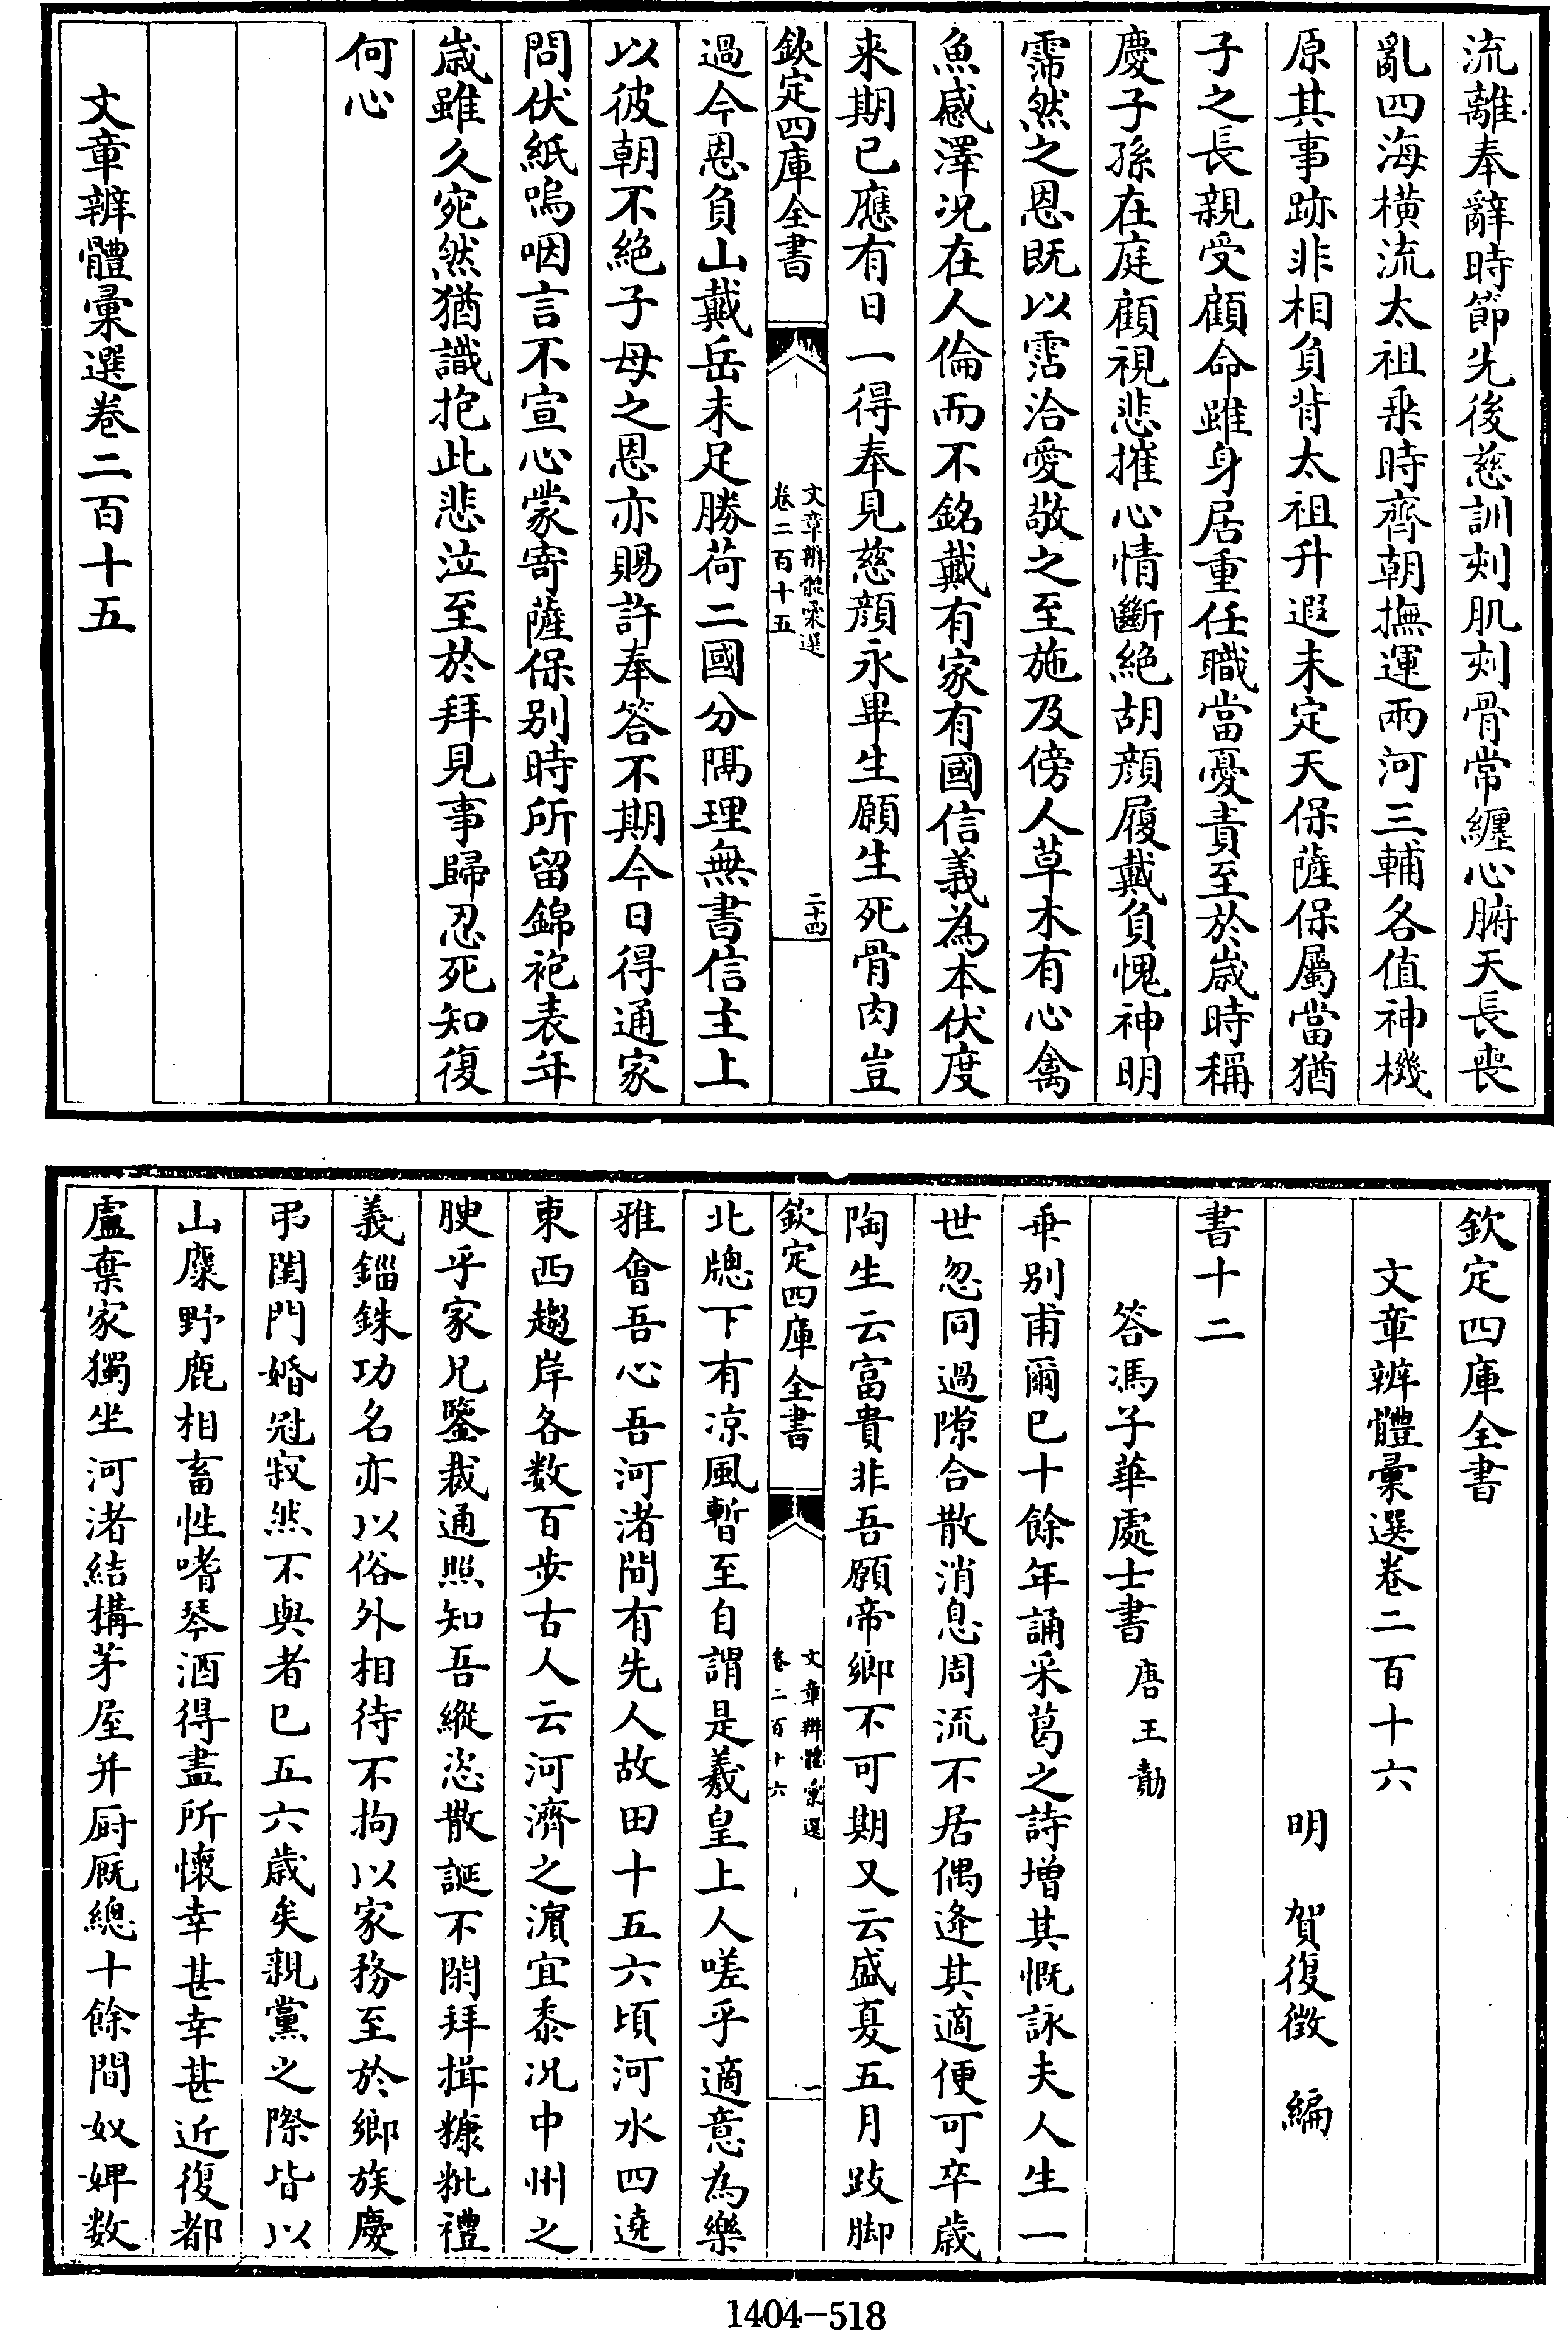 流離奉辭時節先後慈訓刻肌刻骨常纒心腑天長喪
亂四海横流太祖乗時齊朝撫運兩河三輔各值神機
原其事跡非相負背太祖升遐未定天保薩保屬當猶
子之長親受顧命雖身居重任職當憂責至於歳時稱
慶子孫在庭顧視悲摧心情斷絶胡顔履戴負愧神明
霈然之恩既以霑洽愛敬之至施及傍人草木有心禽
魚感澤況在人倫而不銘戴有家有國信義為本伏度
来期已應有日一得奉見慈顔永畢生願生死骨肉豈
欽定四庫全書
文章辨體彙選
卷二百十五
二十四
過今恩負山戴岳未足勝荷二國分隔理無書信主上
以彼朝不絶子母之恩亦賜許奉答不期今日得通家
問伏紙嗚咽言不宣心蒙寄薩保别時所留錦袍表年
歳雖久宛然猶識抱此悲泣至於拜見事歸忍死知復
何心
文章辨體彙選卷二百十五
欽定四庫全書
文章辨體彙選卷二百十六
明 賀復徵 編
書十二
答馮子華處士書 唐王勣
乗别甫爾已十餘年誦采葛之詩增其慨詠夫人生一
世忽同過隙合散消息周流不居偶逢其適便可卒歳
陶生云富貴非吾願帝鄉不可期又云盛夏五月跂脚
欽定四庫全書
文章辨體彙選
卷二百十六
一
北牕下有凉風暫至自謂是羲皇上人嗟乎適意為樂
雅會吾心吾河渚間有先人故田十五六頃河水四遶
東西趨岸各數百步古人云河濟之濵宜黍況中州之
腴乎家兄鑒裁通照知吾縱恣散誕不閑拜揖糠粃禮
義錙銖功名亦以俗外相待不拘以家務至於鄉族慶
弔閨門婚冠寂然不與者已五六歳矣親黨之際皆以
山麋野鹿相畜性嗜琴酒得盡所懷幸甚幸甚近復都
盧棄家獨坐河渚結構茅屋并厨厩總十餘間奴婢数
1404-518